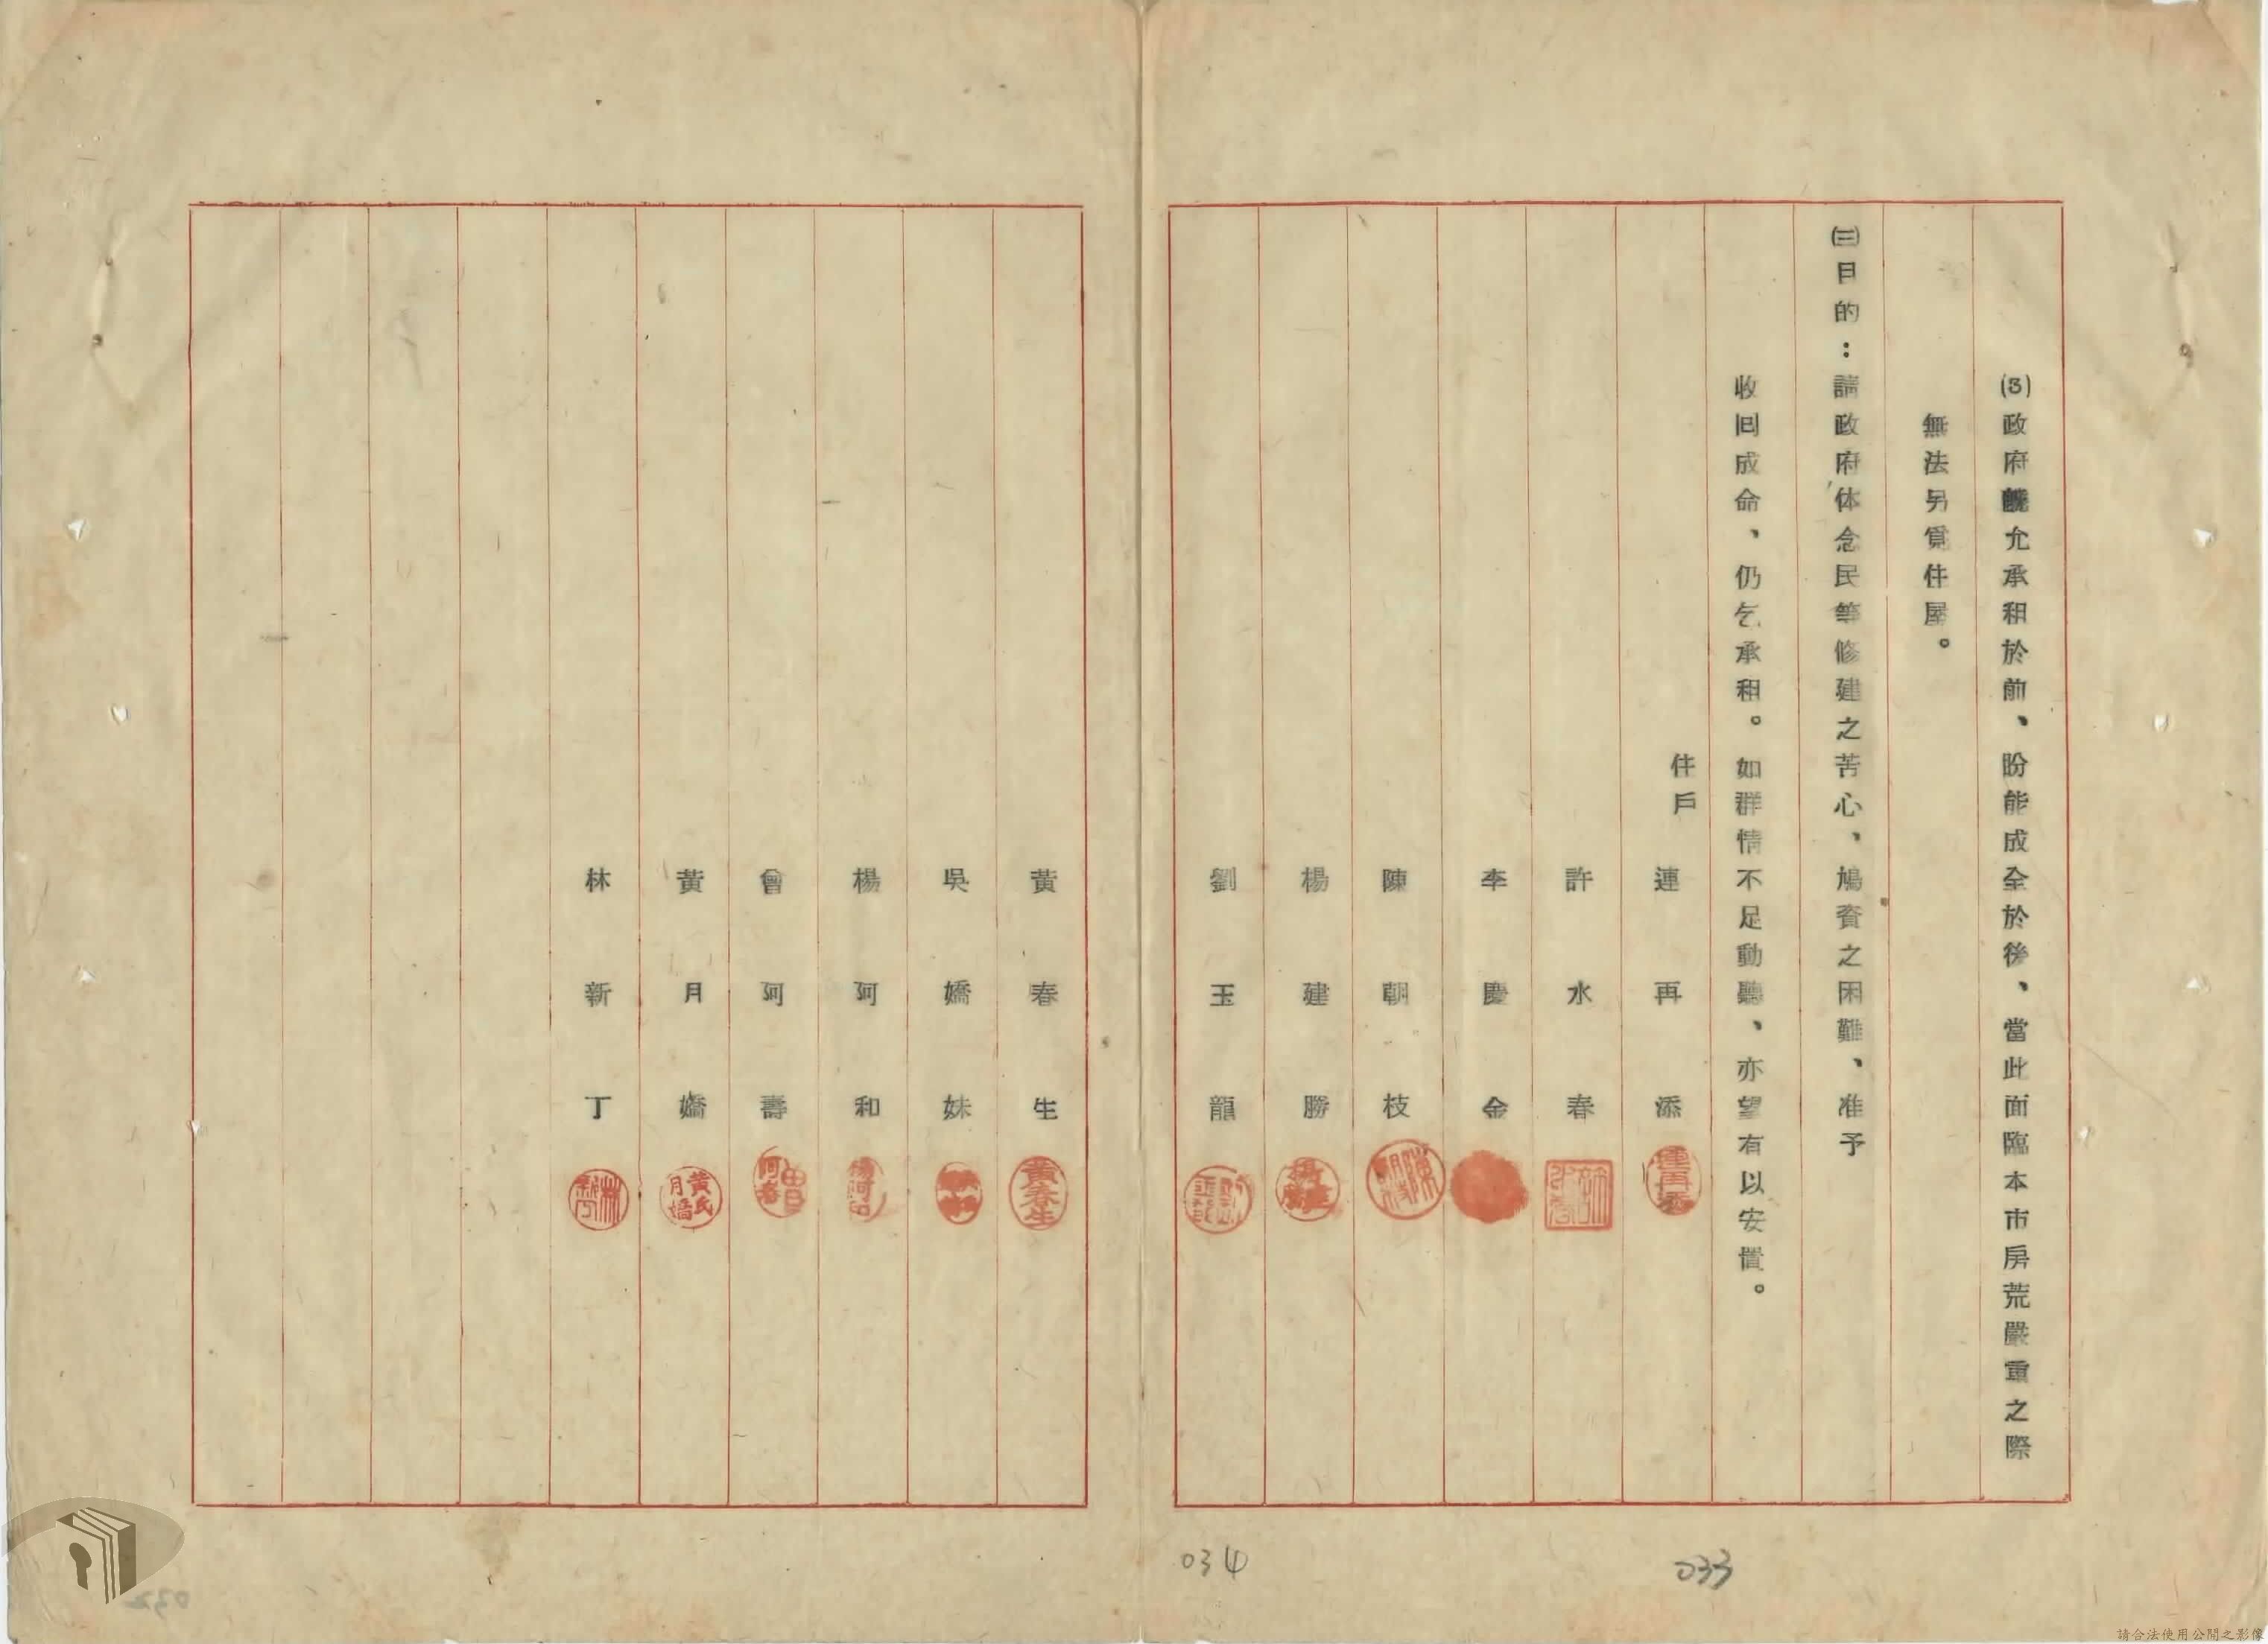 (3)政府既允承租於前、盼能成全於後、當此面臨本市房荒嚴重之際
無法另覓住屋。
㈢目的：請政府体念民等修建之苦心、鳩資之困難、准予
收回成命、仍乞承租。如群情不足動聽、亦望有以安置。
住戶
連再添
許水春
李慶金
陳朝枝
楊建勝
劉玉龍
黃春生
吳嬌妹
楊阿和
曾阿壽
黃月嬌
林新丁
黃春生
黃氏月嬌
林新丁
034
033
032
請合法使用公開之影像